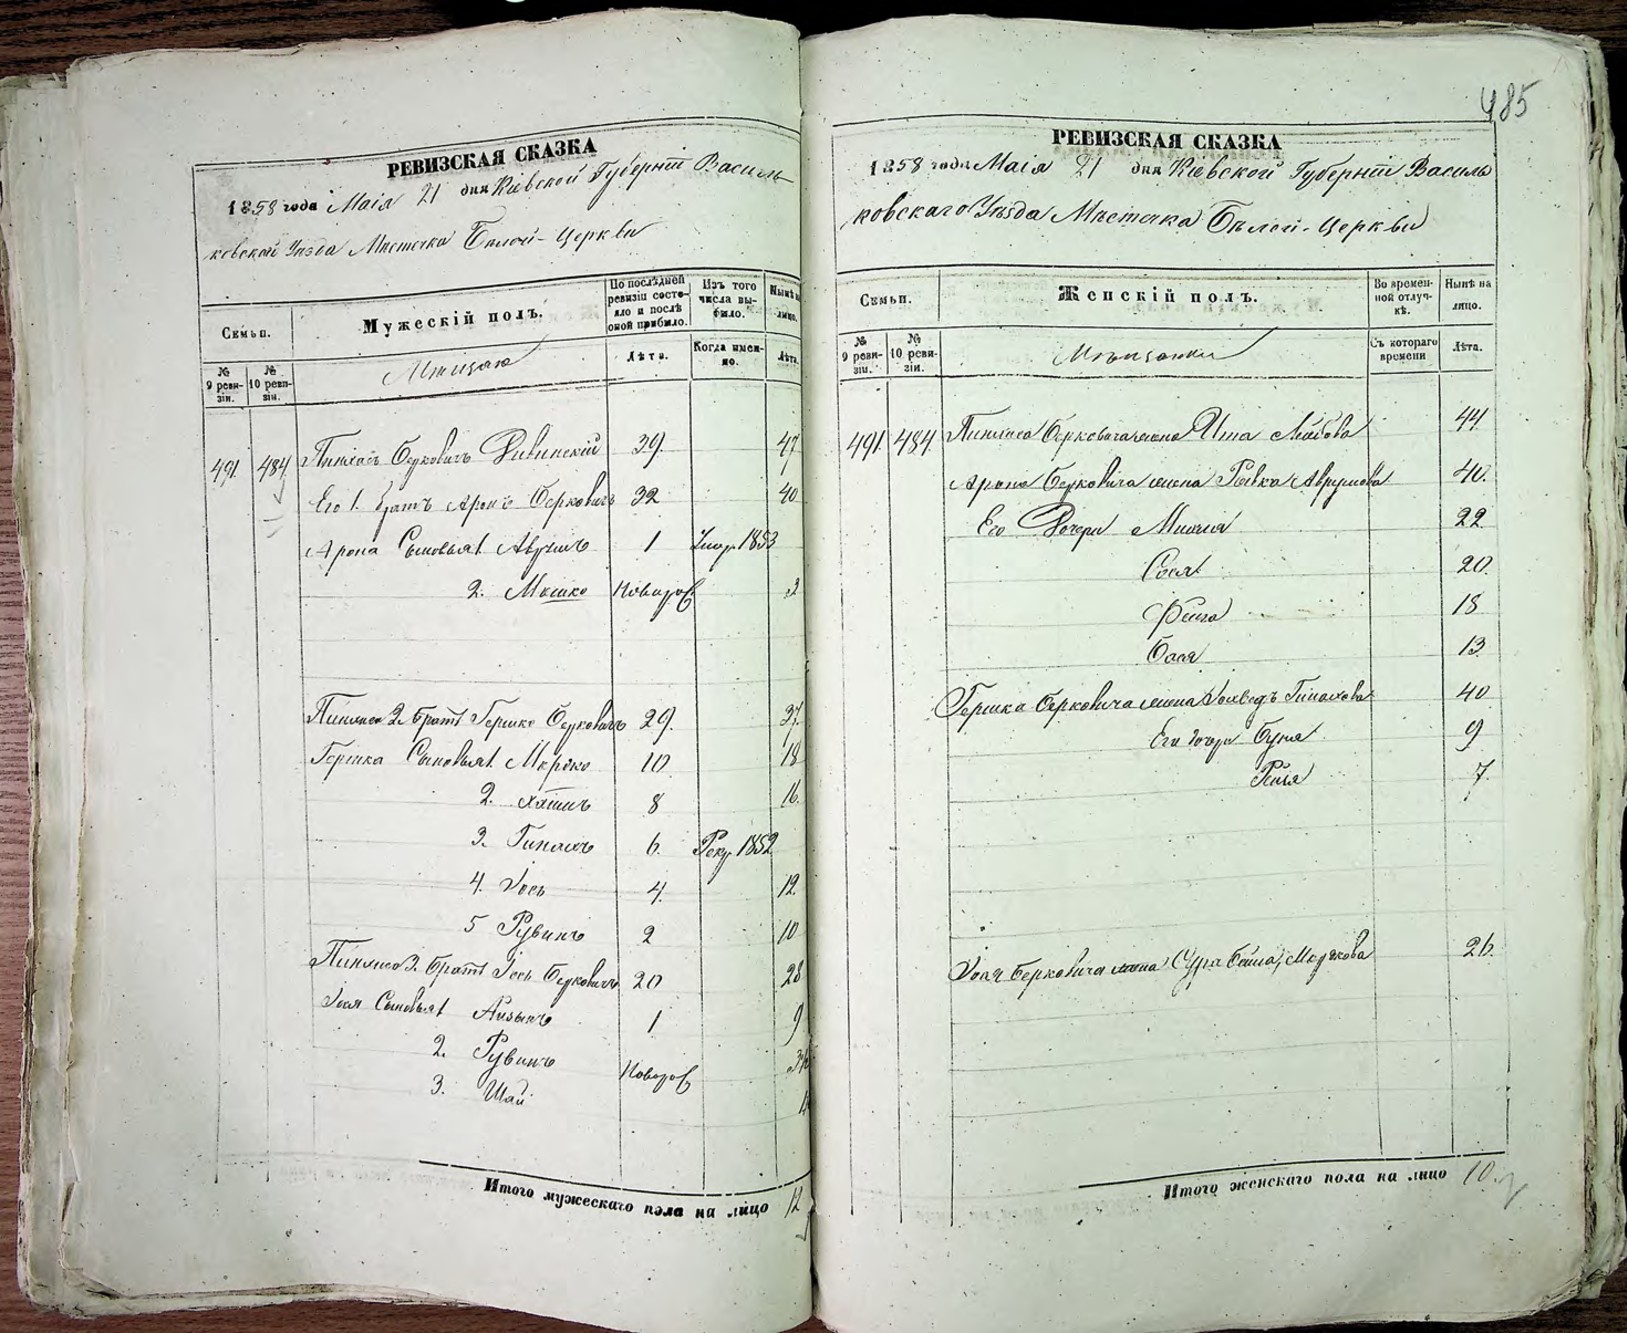 РЕВИЗСКАЯ СКАЗКА
1858 года Маія 21 дня Кіевской Губерніи Василь
ковской Уѣзда Мѣстечка Бѣлой-Церкви
Семьи.
Мужескій полъ.
По послѣдней ревизіи состояло и послѣ оной прибыло.
Изъ того числа выбыло.
Нынѣ на лицо.
№ 9 ревизіи.
№ 10 ревизіи.
Мѣщане
Лѣта.
Когда именно.
Лѣта.
491 484 Пинхасъ Берковичъ 39. 47
Его 1. братъ Аронъ Берковичъ 32 40
Арона Сыновья 1. Аврумъ 1 Умер. 1853
2. Мошко Новорож 2
Пинхаса 2. братъ Гершко Берковичъ 29. 37.
Гершка Сыновья 1. Мордко 10 18
2. Хаимъ 8 16.
3. 6. Рекр. 1852
4. Іось 4. 12
5 Рувинъ 2 10
Пинхаса 3. братъ Іось Берковичъ 20 28
Іося Сыновья 1 Айзыкъ 1 9
2. Рувинъ Новорож
3. Шая
Итого мужескаго пола на лицо 12
485
РЕВИЗСКАЯ СКАЗКА
1858 года Маія 21 дня Кіевской Губерніи Василь
ковскаго Уѣзда Мѣстечка Бѣлой-Церкви
Семьи.
Женскій полъ.
Во временной отлучкѣ.
Нынѣ на лицо.
№ 9 ревизіи.
№ 10 ревизіи.
Мѣщанки
Съ котораго времени
Лѣта.
491. 484. Пинхаса Берковича жена Ита Лейбова 44
Арона Берковича жена Ривка Аврумова 40.
Его Дочери 22
Сося 20.
Фейга 18
Бася 13.
Гершка Берковича жена Іохведъ 40
Его дочери Буня 9
Рейзя 7.
Іося Берковича жена Сура Бейла Мордкова 26.
Итого женскаго пола на лицо 10.